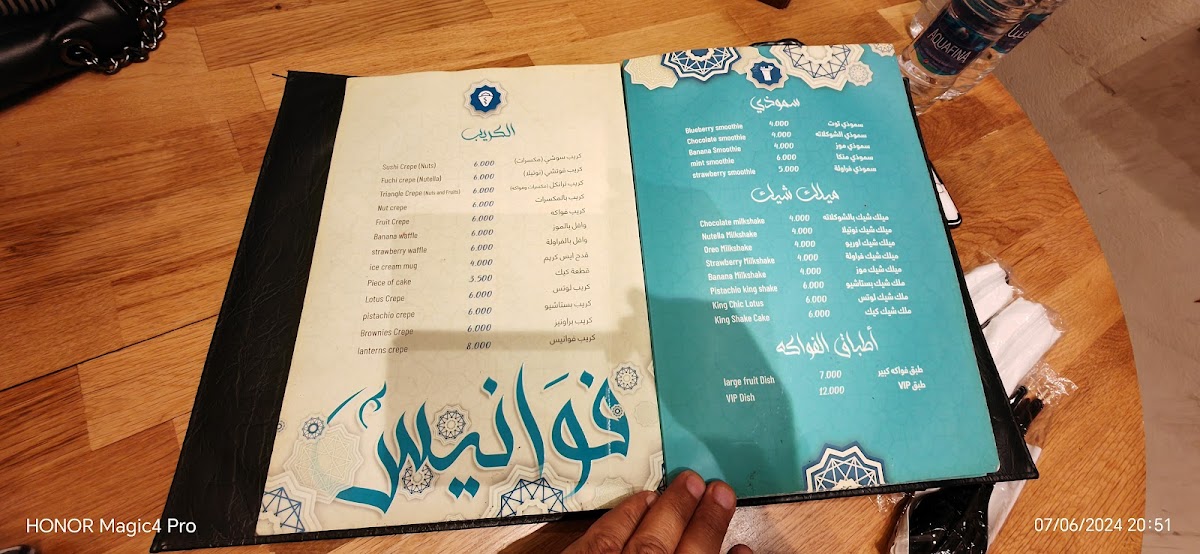 الكريب
Sushi Crepe (Nuts) 6.000 كريب سوشي (مكسرات)
Fuchi crepe (Nutella) 6.000 كريب فوتشي (نوتيلا)
Triangle Crepe (Nuts and Fruits) 6.000 كريب ترانكل (مكسرات وفواكه)
Nut crepe 6.000 كريب بالمكسرات
Fruit Crepe 6.000 كريب فواكه
Banana waffle 6.000 وافل بالموز
strawberry waffle 6.000 وافل بالفراولة
ice cream mug 4.000 قدح ايس كريم
Piece of cake 3.500 قطعة كيك
Lotus Crepe 6.000 كريب لوتس
pistachio crepe 6.000 كريب بستاشيو
Brownies Crepe 6.000 كريب براونيز
lanterns crepe 8.000 كريب فوانيس
فوانيس
سموذي
Blueberry smoothie 4.000 سموذي توت
Chocolate smoothie 4.000 سموذي الشوكلاته
Banana Smoothie 4.000 سموذي موز
mint smoothie 6.000 سموذي منكا
strawberry smoothie 5.000 سموذي فراولة
ميلك شيك
Chocolate milkshake 4.000 ميلك شيك بالشوكلاته
Nutella Milkshake 4.000 ميلك شيك نوتيلا
Oreo Milkshake 4.000 ميلك شيك اوريو
Strawberry Milkshake 4.000 ميلك شيك فراولة
Banana Milkshake 4.000 ميلك شيك موز
Pistachio king shake 6.000 ملك شيك بستاشيو
King Chic Lotus 6.000 ملك شيك لوتس
King Shake Cake 6.000 ملك شيك كيك
أطباق الفواكه
large fruit Dish 7.000 طبق فواكه كبير
VIP Dish 12.000 طبق VIP
AQUAFINA
HONOR Magic4 Pro
07/06/2024 20:51